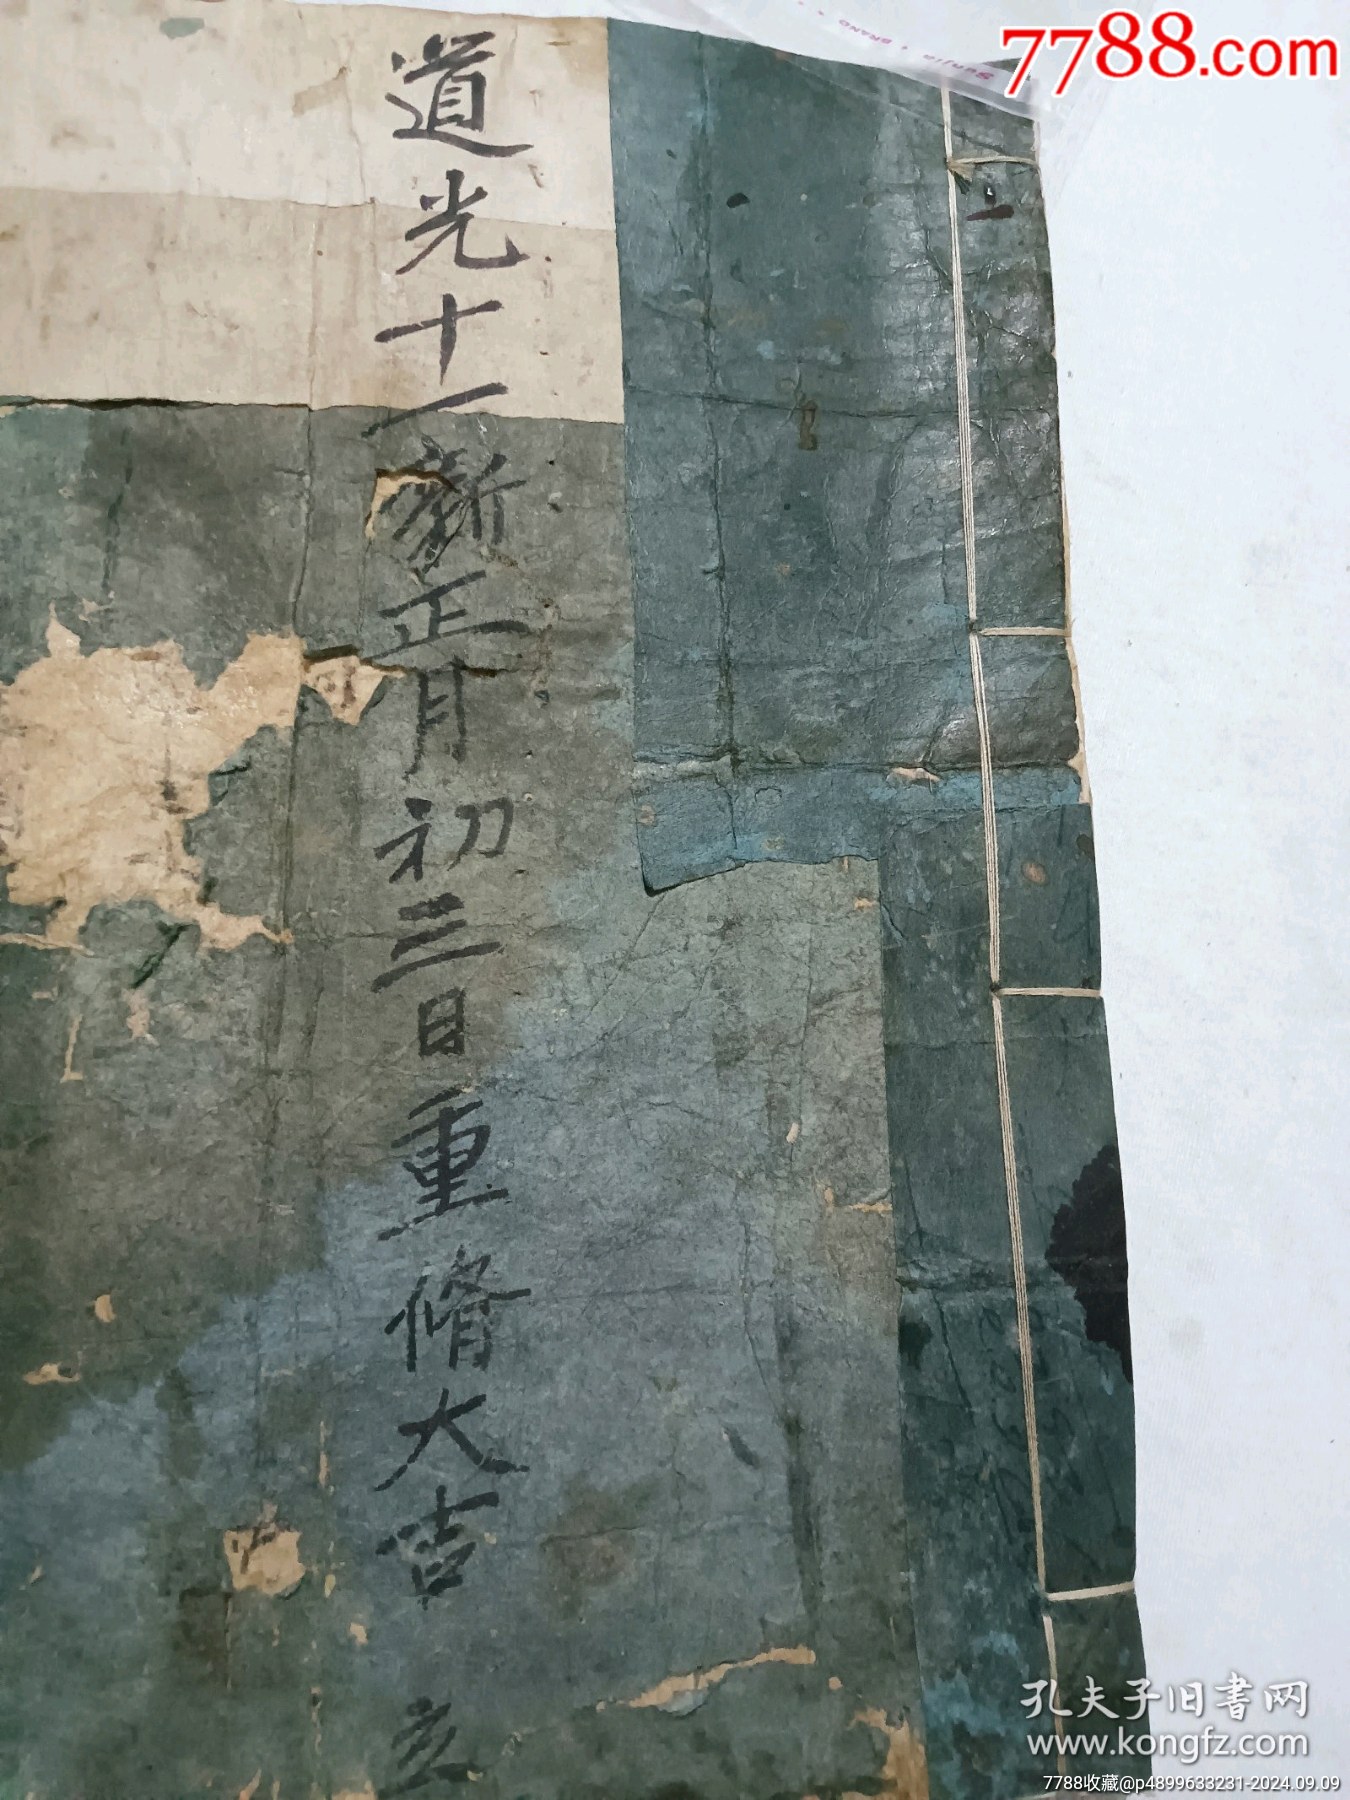 7788.com
Sunjia • BRAND
道光十一新正月初三日重脩大吉 立
孔夫子旧書网
www.kongfz.com
7788收藏@p4899633231-2024.09.09